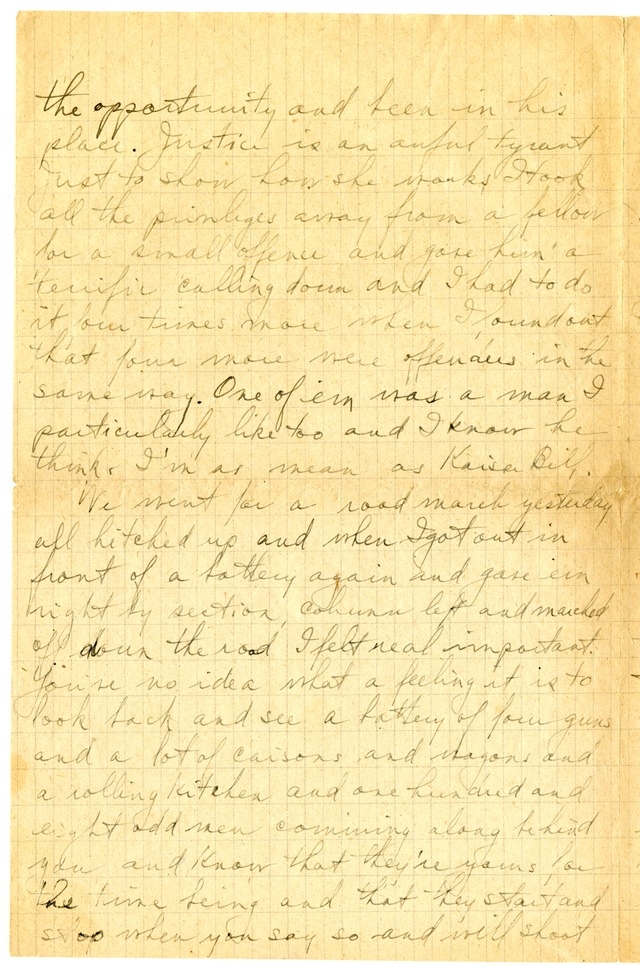 the opportunity and been in his
place. Justice is an awful tyrant
Just to show how she works I took
all the privileges away from a fellow
for a small offence and gave him a
terrific calling down and I had to do
it four times more when I found out
that four more were offenders in the
same way. One of em was a man I
particularly like too and I know he
thinks I'm as mean as Kaiser Bill.
We went for a road march yesterday
all hitched up and when I got out in
front of a battery again and gave em
right by section, column left and marched
off down the road I felt real important.
You've no idea what a feeling it is to
look back and see a battery of four guns
and a lot of caisons and wagons and
a rolling kitchen and one hundred and
eight odd men comming along behind
you and know that they're yours for
the time being and that they start and
stop when you say so and will shoot